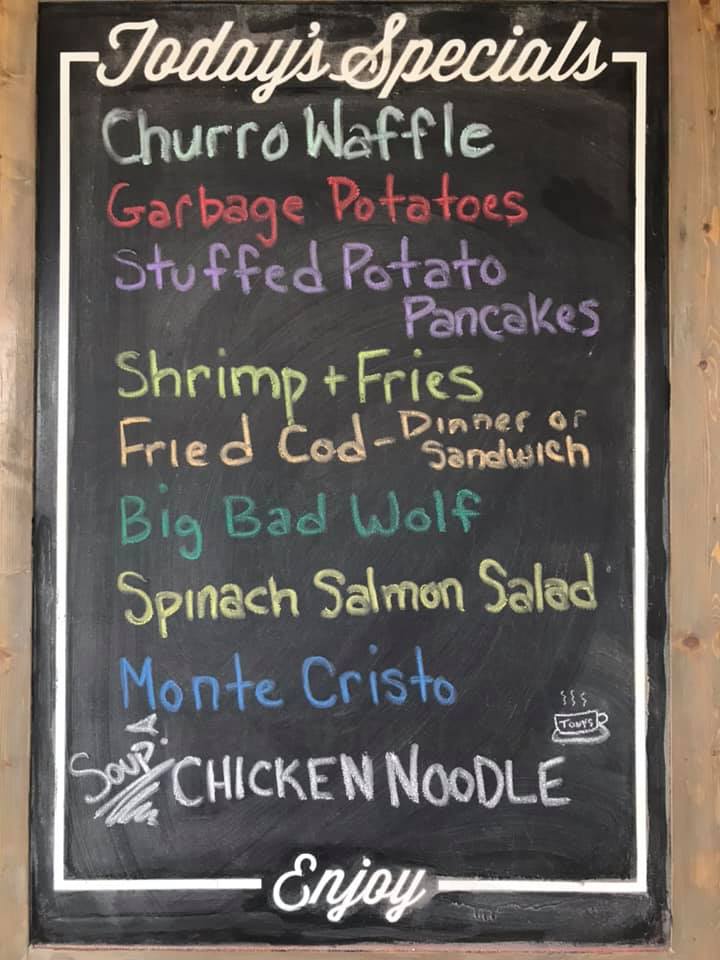 Today's Specials
Churro Waffle
Garbage Potatoes
Stuffed Potato
Pancakes
Shrimp + Fries
Fried Cod - Dinner or
Sandwich
Big Bad Wolf
Spinach Salmon Salad
Monte Cristo
TONYS
Soup! CHICKEN NOODLE
Enjoy